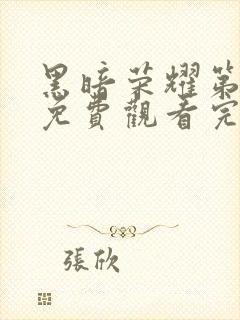 黑暗荣耀第
免費觀看完
張欣